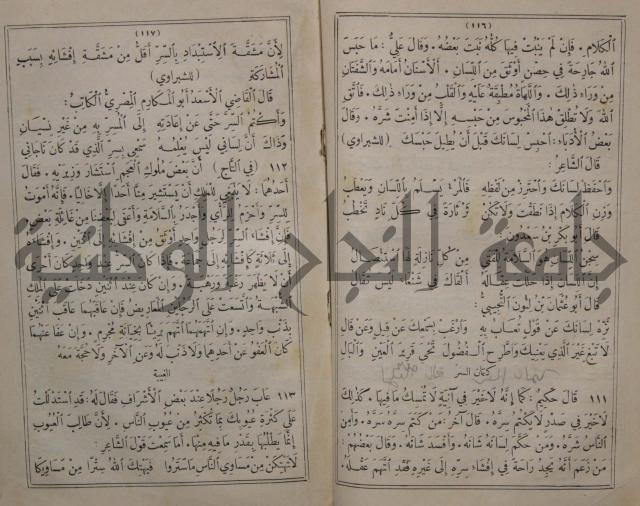 (١١٦)
الكلام . فإن لم ينبت فيها كله نبت بعضه . وقال علي : ما حبس
الله جارحة في حصن أوثق من اللسان . الأسنان أمامه والشفتان
من وراء ذلك . واللهاة مطبقة عليه والقلب من وراء ذلك . فاتق
الله ولا تطلق هذا المحبوس من حبسه إلا إذا أمنت شره . وقال
بعض الأدباء : احبس لسانك قبل أن يطيل حبسك (للشبراوي)
قال الشاعر :
واحفظ لسانك واحترز من لفظه فالمرء يسلم باللسان ويعطب
وزن الكلام إذا نطقت ولا تكن ثرثارة في كل ناد تخطب
قال أبو بكر بن سعدون
سجن اللسان هو السلامة للفتى من كل نازلة لها استئصال
إن اللسان إذا حللت عقاله ألقاك في شنعاء ليس تقال
قال أبو عثمان بن ليون التجيبي :
نزه لسانك عن قول تعاب به وارغب بسمعك عن قيل وعن قال
لا تبغ غير الذي يعنيك واطرح الفضول تحيا قرير العين والبال
كتمان السر
١١١ قال حكيم : كما إنه لا خير في آنية لا تمسك ما فيها . كذلك
لا خير في صدر لا يكتم سره . قال آخر : من كتم سره سره . وأمن
الناس شره . ومن حكم لسانه شانه . وأفسد شانه . وقال بعضهم :
من زعم أنه يجد راحة في إفشاء سره إلى غيره فقد اتهم عقله .
(١١٧)
لأن مشقة الاستبداد بالسر أقل من مشقة إفشائه بسبب
المشاركة (للشبراوي)
قال القاضي الأسعد أبو المكارم المصري الكاتب :
وأكتم السر حتى عن إعادته إلى المسر به من غير نسيان
وذاك أن لساني ليس يعلمه سمعي بسر الذي قد كان ناجاني
١١٢ (في التاج) أن بعض ملوك العجم استشار وزيريه . فقال
أحدهما : لا ينبغي للملك أن يستشير منا أحدا إلا خاليا . فإنه أموت
للسر وأحزم للرأي وأجدر بالسلامة وأعفى لبعضنا من غائلة بعض .
فإن إفشاء السر لرجل واحد أوثق من إفشائه إلى اثنين . وإفشاءه
إلى ثلاثة كإفشائه إلى جماعة
أن لا يظهر رغبة ورهبة . وإن كان عند اثنين دخلت على الملك
الشبهة واتسعت على الرجلين المعاريض فإن عاقبهما عاقب اثنين
بذنب واحد . وإن اتهمهما اتهم بريئا بجناية مجرم . وإن عفا عنهما
كان العفو عن أحدهما ولا ذنب له وعن الآخر ولا حجة معه
الغيبة
١١٣ عاب رجل رجلا عند بعض الأشراف فقال له : قد استدللت
على كثرة عيوبك بما تكثر من عيوب الناس . لأن طالب العيوب
إنما يطلبها بقدر ما فيه منها . أما سمعت قول الشاعر :
لا تهتكن من مساوي الناس ما ستروا فيهتك الله سترا من مساويكا
جامعة النجاح الوطنية